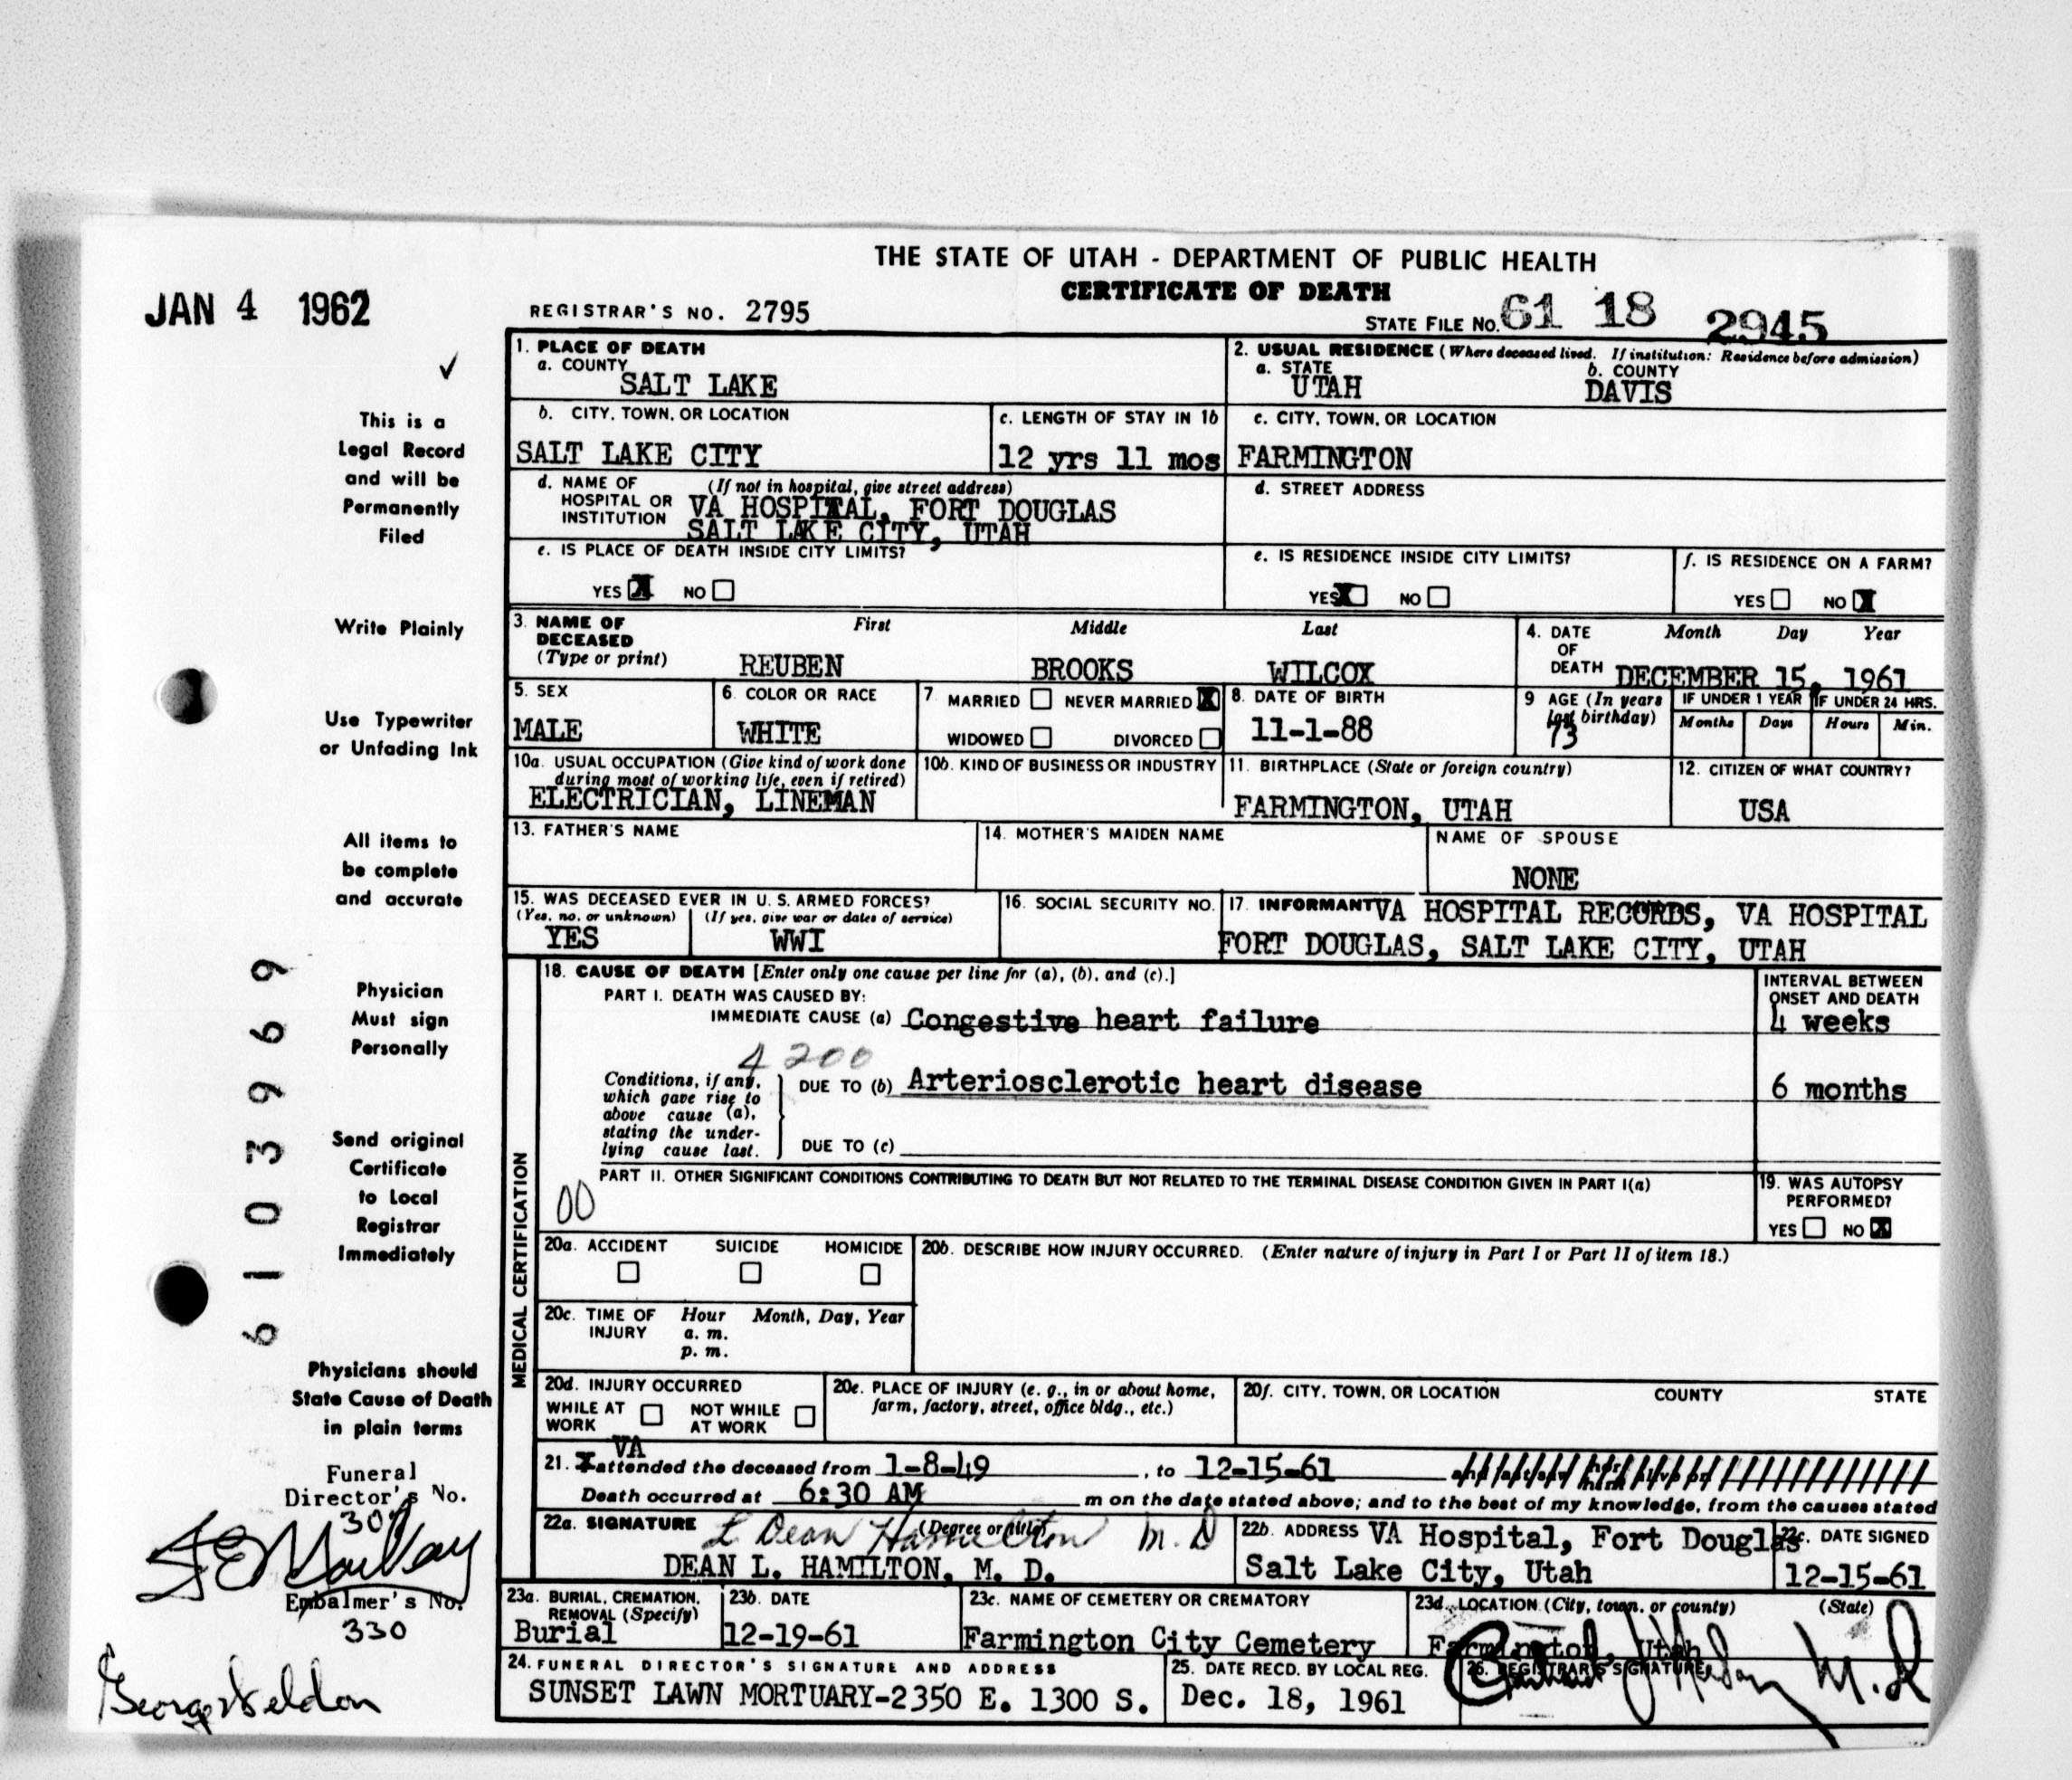 THE STATE OF UTAH - DEPARTMENT OF PUBLIC HEALTH
CERTIFICATE OF DEATH
JAN 4 1962
REGISTRAR'S NO. 2795
STATE FILE NO. 61 18 2945
✓
This is a
Legal Record
and will be
Permanently
Filed
Write Plainly
Use Typewriter
or Unfading Ink
All items to
be complete
and accurate
Physician
Must sign
Personally
Send original
Certificate
to Local
Registrar
Immediately
Physicians should
State Cause of Death
in plain terms
6103969
Funeral
Director's No.
Embalmer's No.
330
George Weldon
1. PLACE OF DEATH
a. COUNTY
SALT LAKE
2. USUAL RESIDENCE (Where deceased lived. If institution: Residence before admission)
a. STATE b. COUNTY
UTAH DAVIS
b. CITY, TOWN, OR LOCATION
SALT LAKE CITY
c. LENGTH OF STAY IN 1b
12 yrs 11 mos
c. CITY, TOWN, OR LOCATION
FARMINGTON
d. NAME OF HOSPITAL OR INSTITUTION (If not in hospital, give street address)
VA HOSPITAL, FORT DOUGLAS
SALT LAKE CITY, UTAH
d. STREET ADDRESS
e. IS PLACE OF DEATH INSIDE CITY LIMITS?
YES X NO
e. IS RESIDENCE INSIDE CITY LIMITS?
YES X NO
f. IS RESIDENCE ON A FARM?
YES NO X
3. NAME OF DECEASED (Type or print)
First Middle Last
REUBEN BROOKS WILCOX
4. DATE OF DEATH
Month Day Year
DECEMBER 15, 1961
5. SEX
MALE
6. COLOR OR RACE
WHITE
7. MARRIED NEVER MARRIED X
WIDOWED DIVORCED
8. DATE OF BIRTH
11-1-88
9 AGE (In years last birthday)
73
IF UNDER 1 YEAR
Months Days
IF UNDER 24 HRS.
Hours Min.
10a. USUAL OCCUPATION (Give kind of work done during most of working life, even if retired)
ELECTRICIAN, LINEMAN
10b. KIND OF BUSINESS OR INDUSTRY
11. BIRTHPLACE (State or foreign country)
FARMINGTON, UTAH
12. CITIZEN OF WHAT COUNTRY?
USA
13. FATHER'S NAME
14. MOTHER'S MAIDEN NAME
NAME OF SPOUSE
NONE
15. WAS DECEASED EVER IN U. S. ARMED FORCES?
(Yes, no, or unknown) (If yes, give war or dates of service)
YES WWI
16. SOCIAL SECURITY NO.
17. INFORMANT VA HOSPITAL RECORDS, VA HOSPITAL
FORT DOUGLAS, SALT LAKE CITY, UTAH
MEDICAL CERTIFICATION
18. CAUSE OF DEATH [Enter only one cause per line for (a), (b), and (c).]
PART I. DEATH WAS CAUSED BY:
IMMEDIATE CAUSE (a) Congestive heart failure
INTERVAL BETWEEN ONSET AND DEATH
4 weeks
4200
Conditions, if any, which gave rise to above cause (a), stating the underlying cause last.
DUE TO (b) Arteriosclerotic heart disease
6 months
DUE TO (c)
PART II. OTHER SIGNIFICANT CONDITIONS CONTRIBUTING TO DEATH BUT NOT RELATED TO THE TERMINAL DISEASE CONDITION GIVEN IN PART I(a)
00
19. WAS AUTOPSY PERFORMED?
YES NO X
20a. ACCIDENT SUICIDE HOMICIDE
20b. DESCRIBE HOW INJURY OCCURRED. (Enter nature of injury in Part I or Part II of item 18.)
20c. TIME OF INJURY
Hour Month, Day, Year
a. m.
p. m.
20d. INJURY OCCURRED
WHILE AT WORK NOT WHILE AT WORK
20e. PLACE OF INJURY (e. g., in or about home, farm, factory, street, office bldg., etc.)
20f. CITY, TOWN, OR LOCATION COUNTY STATE
VA
21. I attended the deceased from 1-8-49, to 12-15-61 and last saw her him alive on
Death occurred at 6:30 AM m on the date stated above; and to the best of my knowledge, from the causes stated
22a. SIGNATURE (Degree or title)
L Dean Hamilton M.D
DEAN L. HAMILTON, M. D.
22b. ADDRESS VA Hospital, Fort Douglas
Salt Lake City, Utah
22c. DATE SIGNED
12-15-61
23a. BURIAL, CREMATION, REMOVAL (Specify)
Burial
23b. DATE
12-19-61
23c. NAME OF CEMETERY OR CREMATORY
Farmington City Cemetery
23d. LOCATION (City, town, or county) (State)
Farmington, Utah
24. FUNERAL DIRECTOR'S SIGNATURE AND ADDRESS
SUNSET LAWN MORTUARY-2350 E. 1300 S.
25. DATE RECD. BY LOCAL REG.
Dec. 18, 1961
26. REGISTRAR'S SIGNATURE
M.D